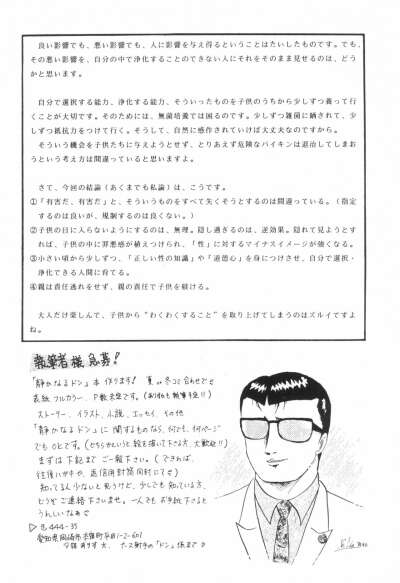 良い影響でも、悪い影響でも、人に影響を与え得るということはたいしたものです。でも、
その悪い影響を、自分の中で浄化することのできない人にそれをそのまま見せるのは、どう
かと思います。
自分で選択する能力、浄化する能力、そういったものを子供のうちから少しずつ養って行
くことが大切です。そのためには、無菌培養では困るのです。少しずつ雑菌に晒されて、少
しずつ抵抗力をつけて行く。そうして、自然に感作されていけば大丈夫なのですから。
そういう機会を子供たちに与えようとせず、とりあえず危険なバイキンは退治してしまお
うという考え方は間違っていると思いますよ。
さて、今回の結論（あくまでも私論）は、こうです。
①「有害だ、有害だ」と、そういうものをすべて失くそうとするのは間違っている。（指定
するのは良いが、規制するのは良くない。）
②子供の目に入らないようにするのは、無理。隠し過ぎるのは、逆効果。隠れて見ようとす
れば、子供の中に罪悪感が植えつけられ、「性」に対するマイナスイメージが強くなる。
③小さい頃から少しずつ、「正しい性の知識」や「道徳心」を身につけさせ、自分で選択・
浄化できる人間に育てる。
④親は責任逃れをせず、親の責任で子供を躾ける。
大人だけ楽しんで、子供から“わくわくすること”を取り上げてしまうのはズルイですよ
ね。
執筆者様急募!
「静かなるドン」本 作ります! 夏か冬コミ合わせで
表紙フルカラー、P数未定です。
ストーリー、イラスト、小説、エッセイ、その他
「静かなるドン」に関するものなら、何でも、何ページ
でもOKです。(どちらかというと絵を描いて下さる方、大歓迎!!)
まずは下記までご一報下さい。(できれば、
往復ハガキや、返信用封筒同封にて)
知ってる人少ないと思うけど、少しでも知っている方、
どうぞご連絡下さいませ。一人でもお手紙下さると
うれしいなあ
〒444-35